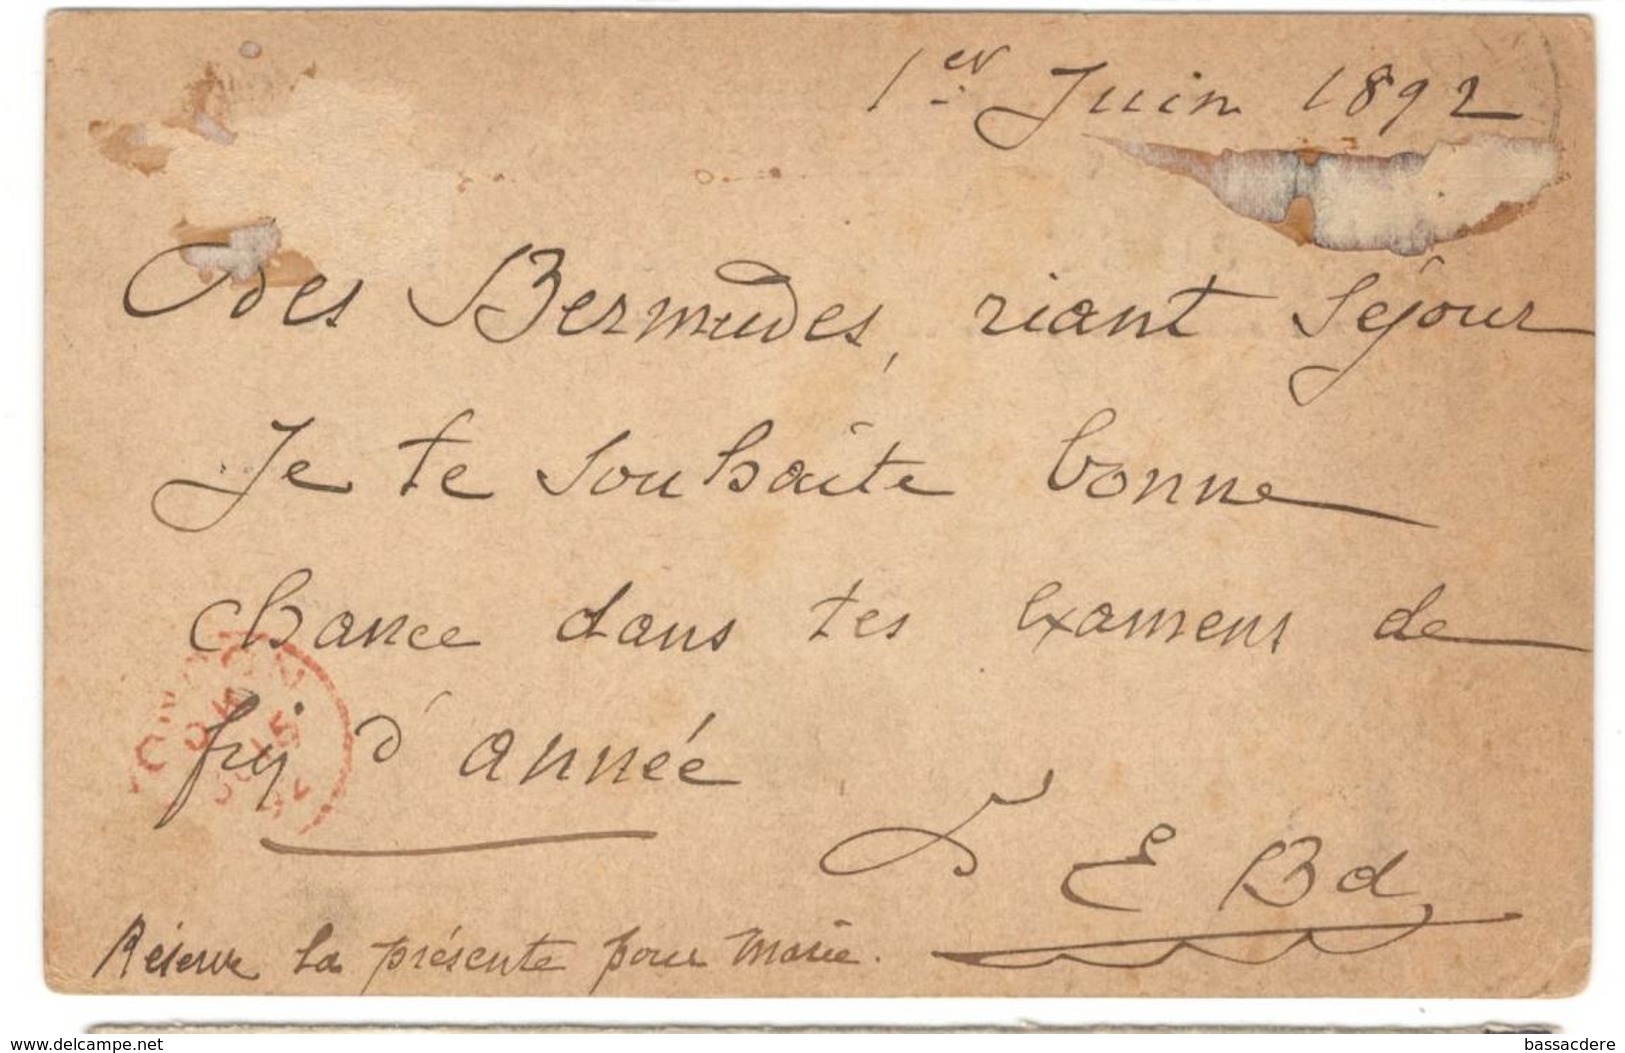 1er Juin 1892
des Bermudes, riant séjour
Je te souhaite bonne
chance dans tes examens de
fin d'année
E Bd
Réserve la présente pour Marie.
www.delcampe.net
bassacdere